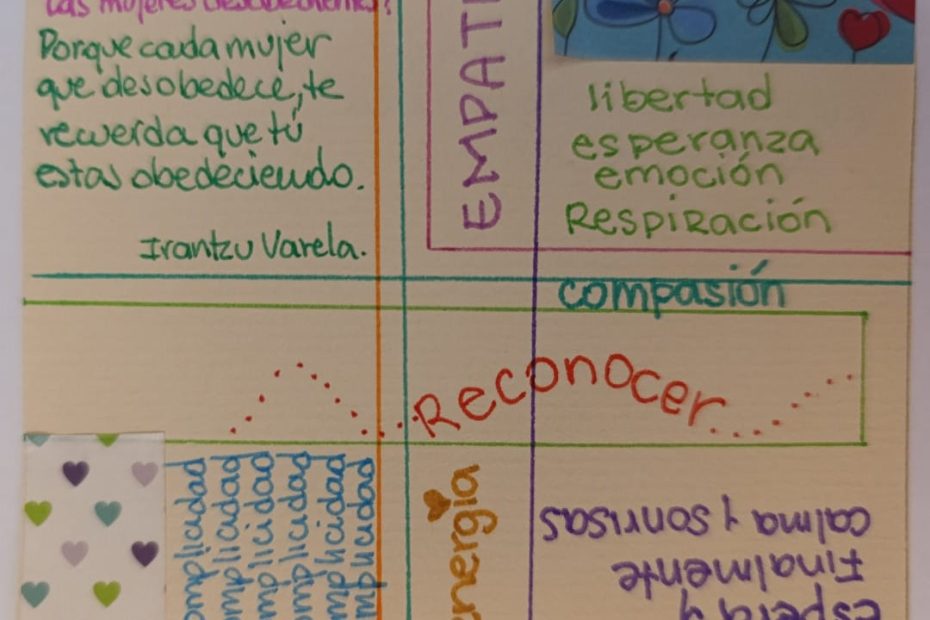 las mujeres desobedientes?
Porque cada mujer
que desobedece, te
recuerda que tú
estas obedeciendo.
Irantzu Varela.
EMPATI
libertad
esperanza
emoción
Respiración
compasión
Reconocer
omplicidad
omplicidad
omplicidad
omplicidad
mplicidad
mplicidad
energía
Espera y
Finalmente
calma y sonrisas